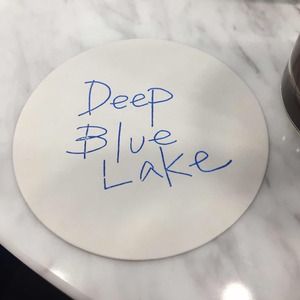 Deep
Blue
Lake